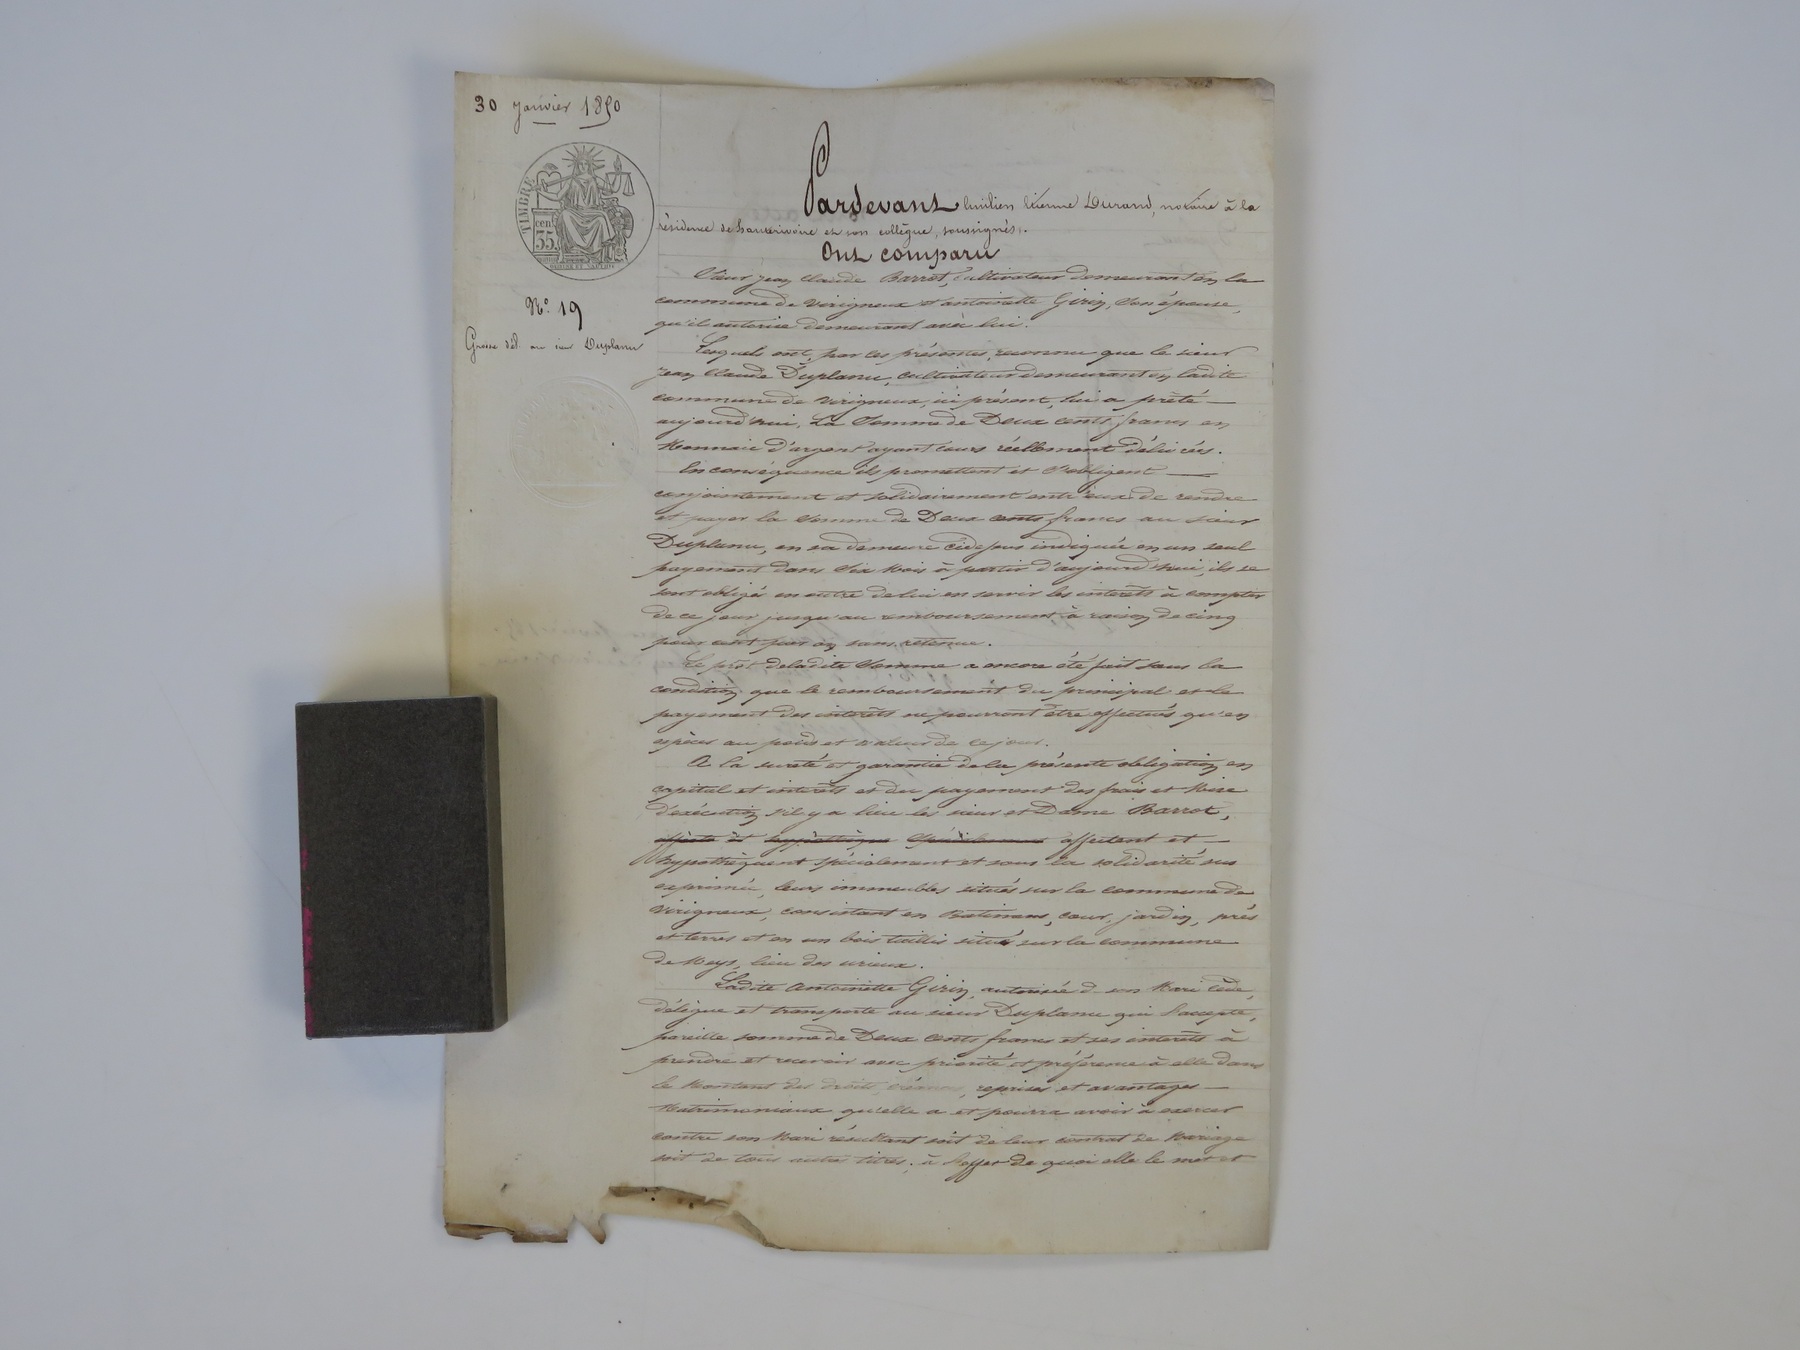 30 janvier 1850
TIMBRE
cen
35
No. 19
Grosse dél. au sieur Duplanu
Pardevant Emilien Etienne Durand, notaire à la
résidence de hauterivoire et son collègue, soussignés.
Ont comparu
Sieur jean Claude Barrot, cultivateur demeurant en la
commune de Virigneux et antoinette Girin, son épouse,
qu'il autorise demeurant avec lui.
Lesquels ont, par ces présentes, reconnu que le sieur
jean Claude Duplanu, cultivateur demeurant en ladite
commune de Virigneux, ici présent, lui a prêté —
aujourd'hui, La Somme de Deux cents francs en
Monnaie d'argent ayant cours réellement délivrés.
En conséquence ils promettent et s'obligent —
conjointement et solidairement entr'eux de rendre
et payer la Somme de Deux cents francs au sieur
Duplanu, en sa demeure cidessus indiquée en un seul
payement dans Six Mois à partir d'aujourd'hui, ils se
sont obligés en outre de lui en servir les intérêts à compter
de ce jour jusqu'au remboursement à raison de cinq
pour cent par an sans retenue.
Le prêt deladite Somme a encore été fait sous la
condition que le remboursement du principal et le
payement des intérêts ne pourront être effectués qu'en
espèces au poids et valeur de ce jour.
A la sureté et garantie de la présente obligation en
capital et intérêts et du payement des frais et Mise
d'exécution s'il y a lieu les sieur et Dame Barrot,
affecte et hypothèque Spécialement affectent et —
hypothèquent spécialement et sous la solidarité sus
exprimée, leurs immeubles situés sur la commune de
Virigneux, consistant en Batimens, cour, jardin, prés
et terres et en un bois taillis situé sur la commune
de Meys, lieu des
Ladite Antoinette Girin, autorisée d son Mari cède,
délègue et transporte au sieur Duplanu qui l'accepte,
pareille somme de Deux cents francs et ses intérêts à
prendre et recevoir avec priorité et préférence à elle dans
le Montant des droits, créances, reprises et avantages —
Matrimoniaux qu'elle a et pourra avoir à exercer
contre son Mari résultant soit de leur contrat de Mariage
soit de tous autres titres; à l'effet de quoi elle le met et